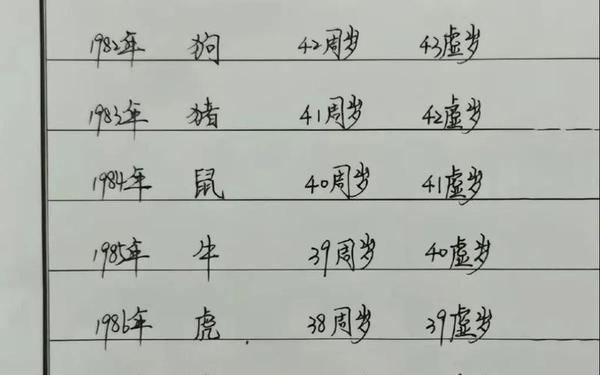 1982年 狗 42周岁 43虚岁
1983年 猪 41周岁 42虚岁
1984年 鼠 40周岁 41虚岁
1985年 牛 39周岁 40虚岁
1986年 虎 38周岁 39虚岁